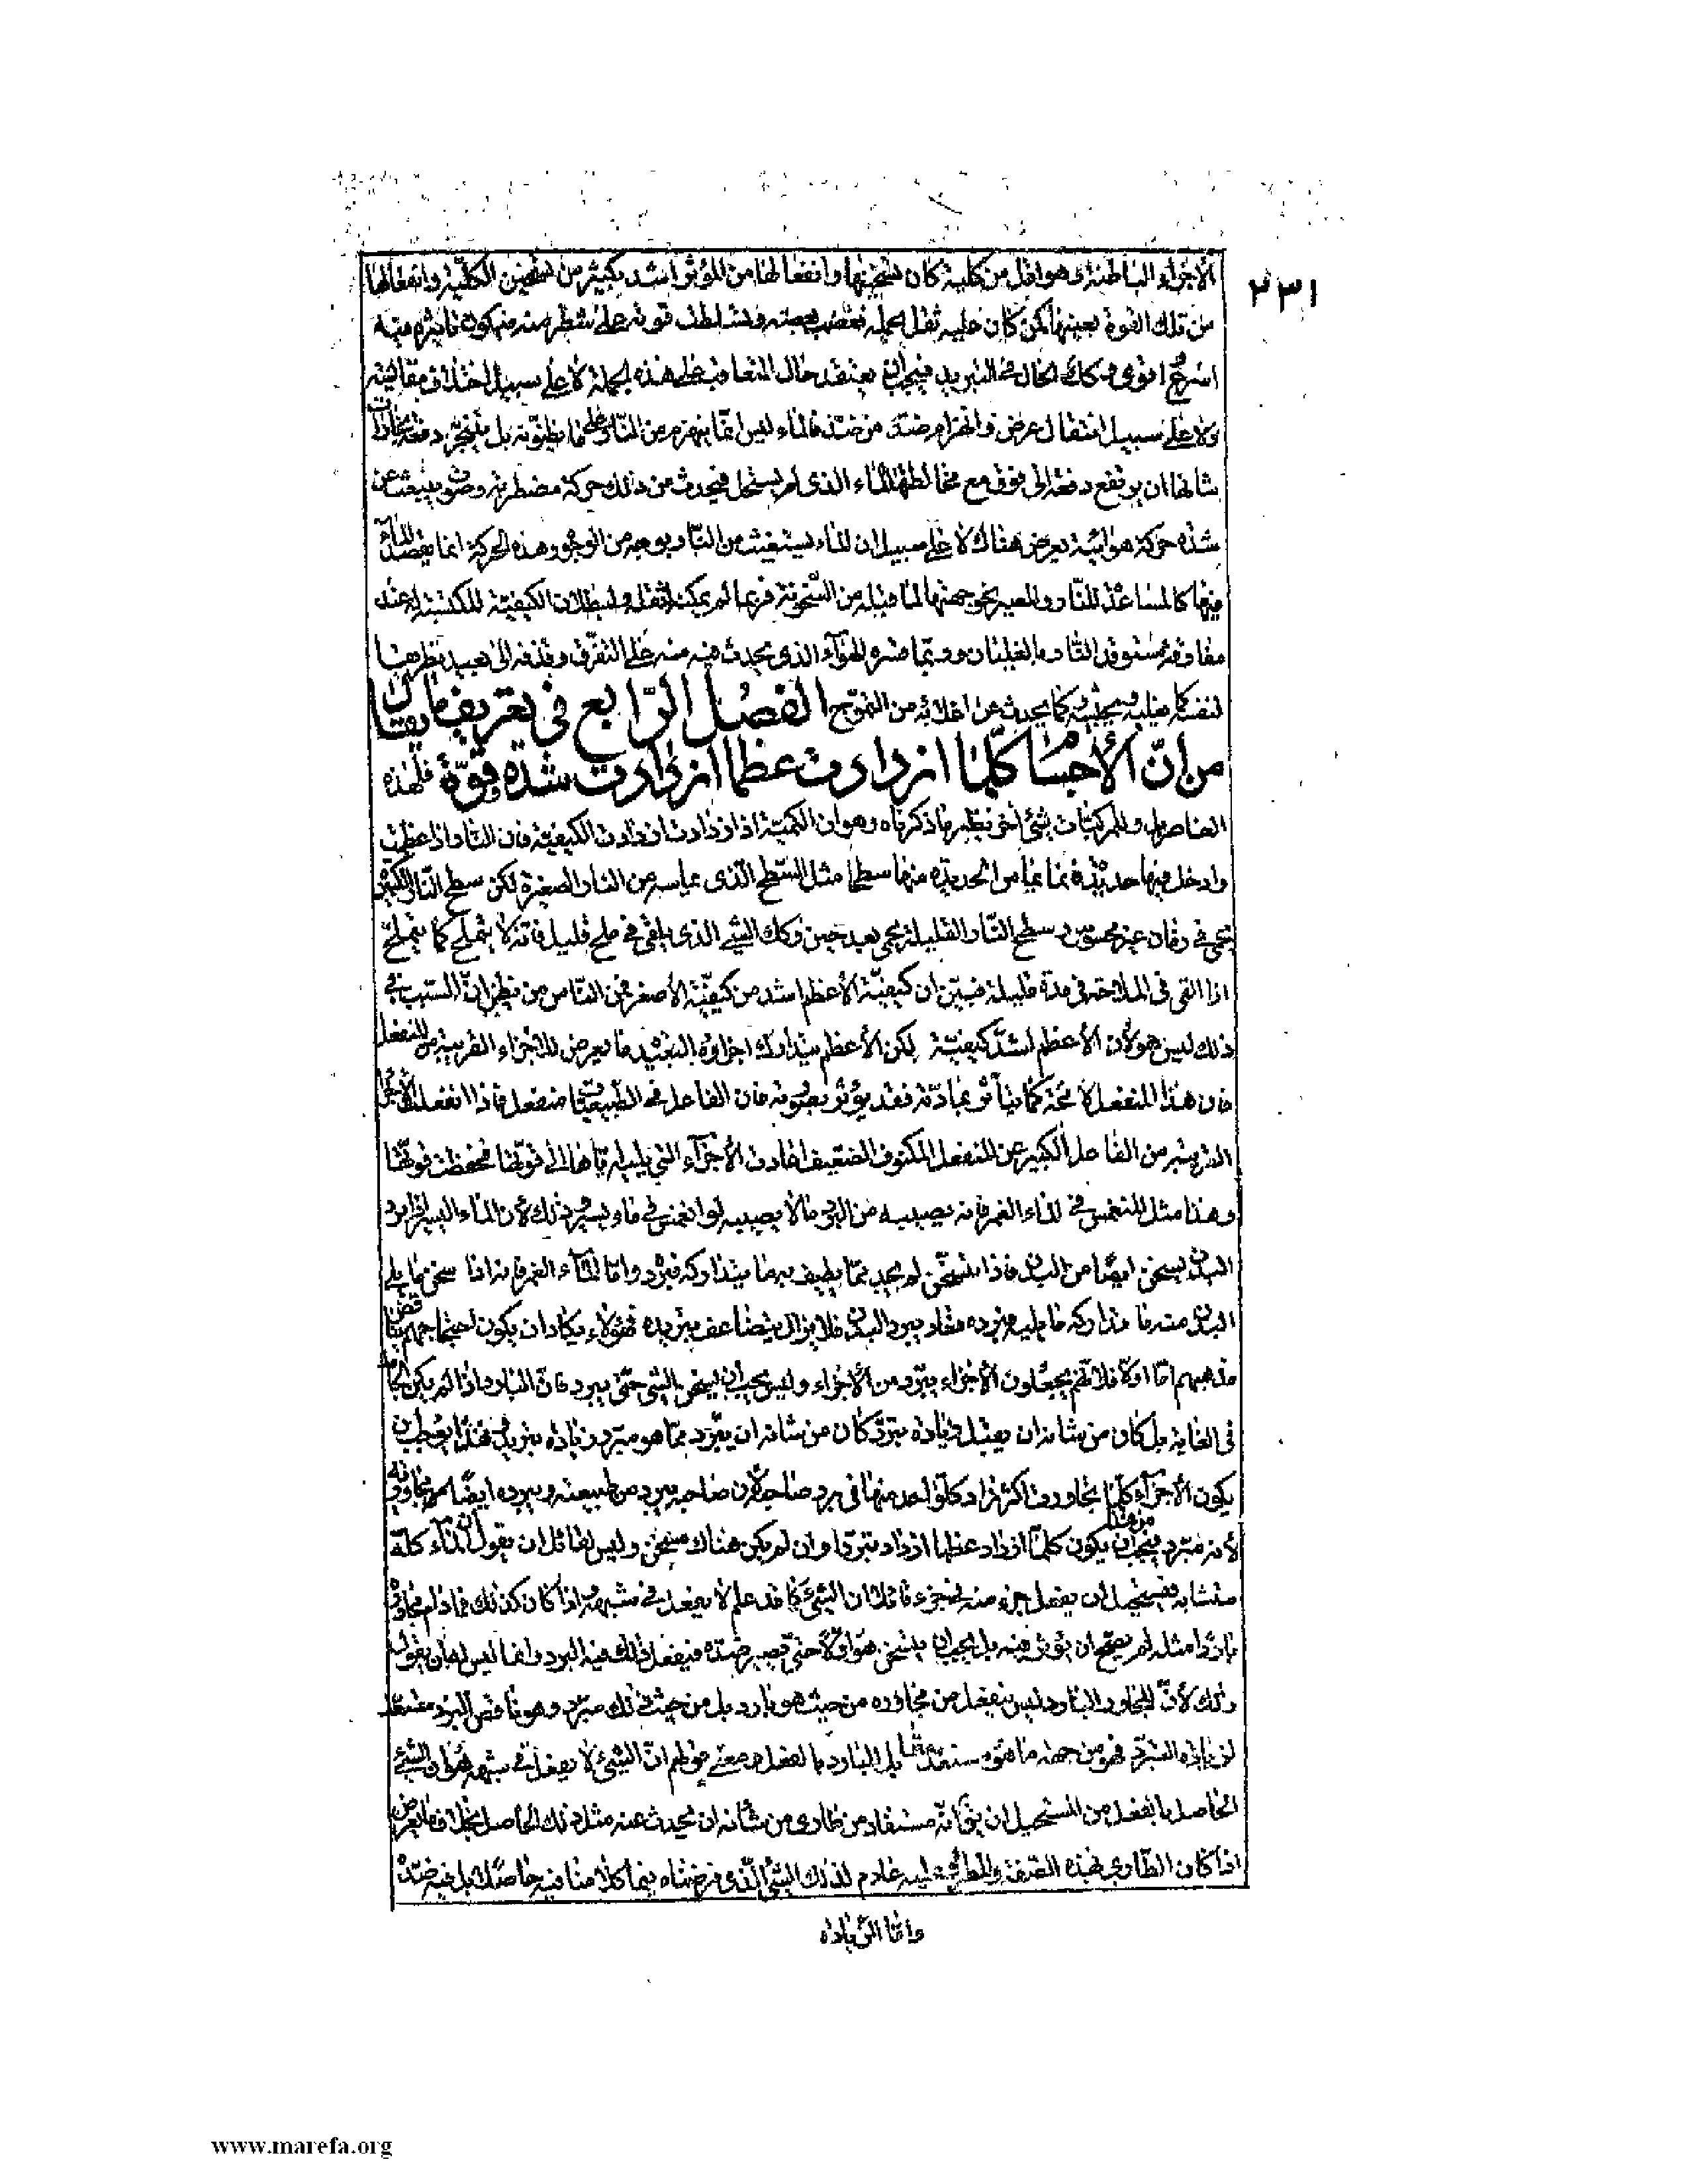 ٢٣١
الأجزاء الباطنة وهو اقل من كلية كان تسخينها وانفعالها من المؤثر اشد بكثير من تسخين الكلية وانفعالها
من تلك القوة بعينها كمن كان عليه ثقل يحمله فغصب بعضه وتسلطت قوته على شطر منه فيكون تاثيره فيه
اسرع واقوى وكك الحال فى التبريد فيجب ان يعتقد حال التعاقب على هذه الجملة لا على سبيل
ولا على سبيل انتقال عرض وانهزام ضد من ضد فالماء ليس انما ينهزم من النار على ما يظنونه بل يتبخر دفعة
شانها ان يرتفع دفعة الى فوق مع مخالطتها الماء الذى لم يستحل فيحدث من ذلك حركة مضطربة وصوت ينبعث عن
شدة حركة هوائية يعرض هناك لا على سبيل ان الماء يستغيث من النار بوجه من الوجوه وهذه الحركة انما يقصد الماء
فيها كالمساعد للنار والمصير نحو جهتها لما قبله من السخونة فربما لم يمكنه لثقله ولبطلان الكيفية المكتسبة له عند
مفارقة مستوقد النار والغليان وربما قسره الهواء الذى يحدث فيه منه على التفرق وقذفه الى بعيد
لنفسه كما يحدث عن اغلائه من التموج الفصل الرابع في تعريف ما يقال
من ان الأجسام كلما ازدادت عظما ازدادت شدة وقوة فلهذه
العناصر بل وللمركبات شئ اخر نظير ما ذكرناه وهو ان الكمية اذا ازدادت ازدادت الكيفية فان النار اذا عظمت
وادخل فيها حديدة فما يماس الحديدة منها سطحا مثل السطح الذى يماسه من النار الصغيرة لكن سطح النار الكبيرة
يحمى فى زمان غير محسوس وسطح النار القليلة يحمى بعد حين وكك الشئ الذى يلقى فى ملح قليل فانه لا يتملح كما يتملح
اذا القى فى الملاحة فى مدة قليلة فيبين ان كيفية الأعظم اشد من كيفية الأصغر فمن الناس من يظن ان السبب فى
ذلك ليس هو لأن الأعظم اشد كيفية لكن الأعظم يتدارك اجزاؤه البعيدة ما يعرض للاجزاء القريبة من المنفعل
فان هذا المنفعل لا محة كما يتأثر بمادته فقد يؤثر بصورته فان الفاعل فى الطبيعيات منفعل فاذا انفعلت الأجزاء
القريبة من الفاعل الكبير عن المنفعل المكنوف الضعيف اعادت الأجزاء التى يليها اياها الى قوتها فحفظت قوتها
وهذا مثل المنغمس فى الماء الغمر فانه يصيبه من البرد ما لا يصيبه لو انغمس فى ماء يسير وذلك لأن الماء اليسير اذا برد
البدن يسخن ايضا من البدن فاذا تسخن لم يجد مما يطيف به ما يتداركه فيبرد واما الماء الغمر فانه اذا سخن ما يلى
البدن منه ما تداركه ما يليه فيبرده فعاد يبرد البدن فلا يزال يتضاعف تبريده فهؤلاء يكاد ان يكون احتجاجهم يناقض
مذهبهم اما اولا فلانهم يجعلون الأجزاء يبرد من الأجزاء وليس يجب ان يسخن الشئ حتى يبرد فان البارد اذا لم يكن
فى الغاية بل كان من شانه ان يقبل زيادة تبرد كان من شانه ان يتبرد مما هو مبرد زيادة تبريد
يكون الأجزاء كلما تجاورت اكثر زاد كل واحد منها فى برد صاحبه لأن صاحبه يبرد من طبيعته ويبرده ايضا
لأنه مبرد فيجب من هذا ان يكون كلما ازداد عظما ازداد تبردا وان لم يكن هناك مسخن وليس لقائل ان يقول ان الماء كله
متشابه فيستحيل ان ينفعل جزء منه من جزء فان الشئ كما قد علم لا يفعل فى شبهه واذا كان كذلك فما دام مجاوره
باردا مثله لم يصح ان يؤثر فيه بل يجب ان يتسخن هو اولا حتى يصير ضده فيفعل ذلك فيه البرد وانما ليس له ان يقول
ذلك لأن المجاور البارد ليس ينفعل من مجاوره من حيث هو بارد بل من حيث ذلك مبرد وهو ناقص البرد مستعد
لزيادة التبرد فهو من جهة ما هو مستعد بل البارد بالفعل ومعنى قولهم ان الشئ لا يفعل فى شبهه هو ان الشئ
الحاصل بالفعل من المستحيل ان يق انه مستفاد من طارئ من شأنه ان يحدث عنه مثل ذلك الحاصل
اذا كان الطارئ بهذه الصفة والمطرو عليه عادم لذلك الشئ الذى فرضناه فيما كلامنا فيه حاصلا بل فيه ضده
واما الزيادة
www.marefa.org